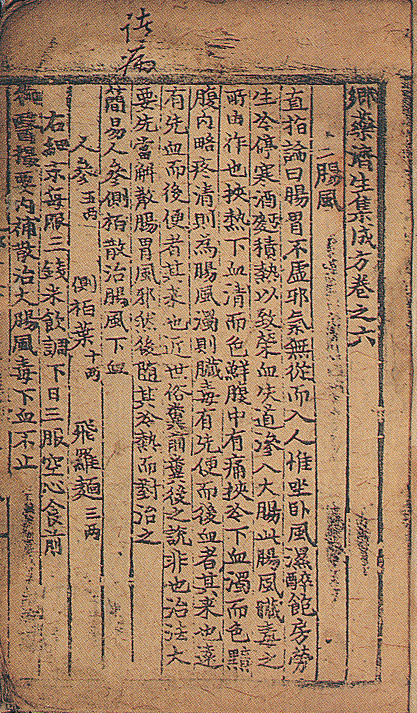 病
鄉藥濟生集成方卷之六
二腸風
直指論曰腸胃不虛邪氣無從而入人惟坐臥風濕醉飽房勞
生冷停寒酒麵積熱以致榮血失道滲入大腸此腸風臟毒之
所由作也挾熱下血清而色鮮腹中有痛挾冷下血濁而色黯
腹內略疼清則為腸風濁則臟毒有先便而後血者其來也遠
有先血而後便者其來也近世俗糞前糞後之說非也治法大
要先當解散腸胃風邪然後隨其冷熱而對治之
簡易人參側栢散治腸風下血
人參五兩 側栢葉十兩 飛羅麵三兩
右細末每服三錢米飮調下日三服空心食前
醫撮要內補散治大腸風毒下血不止